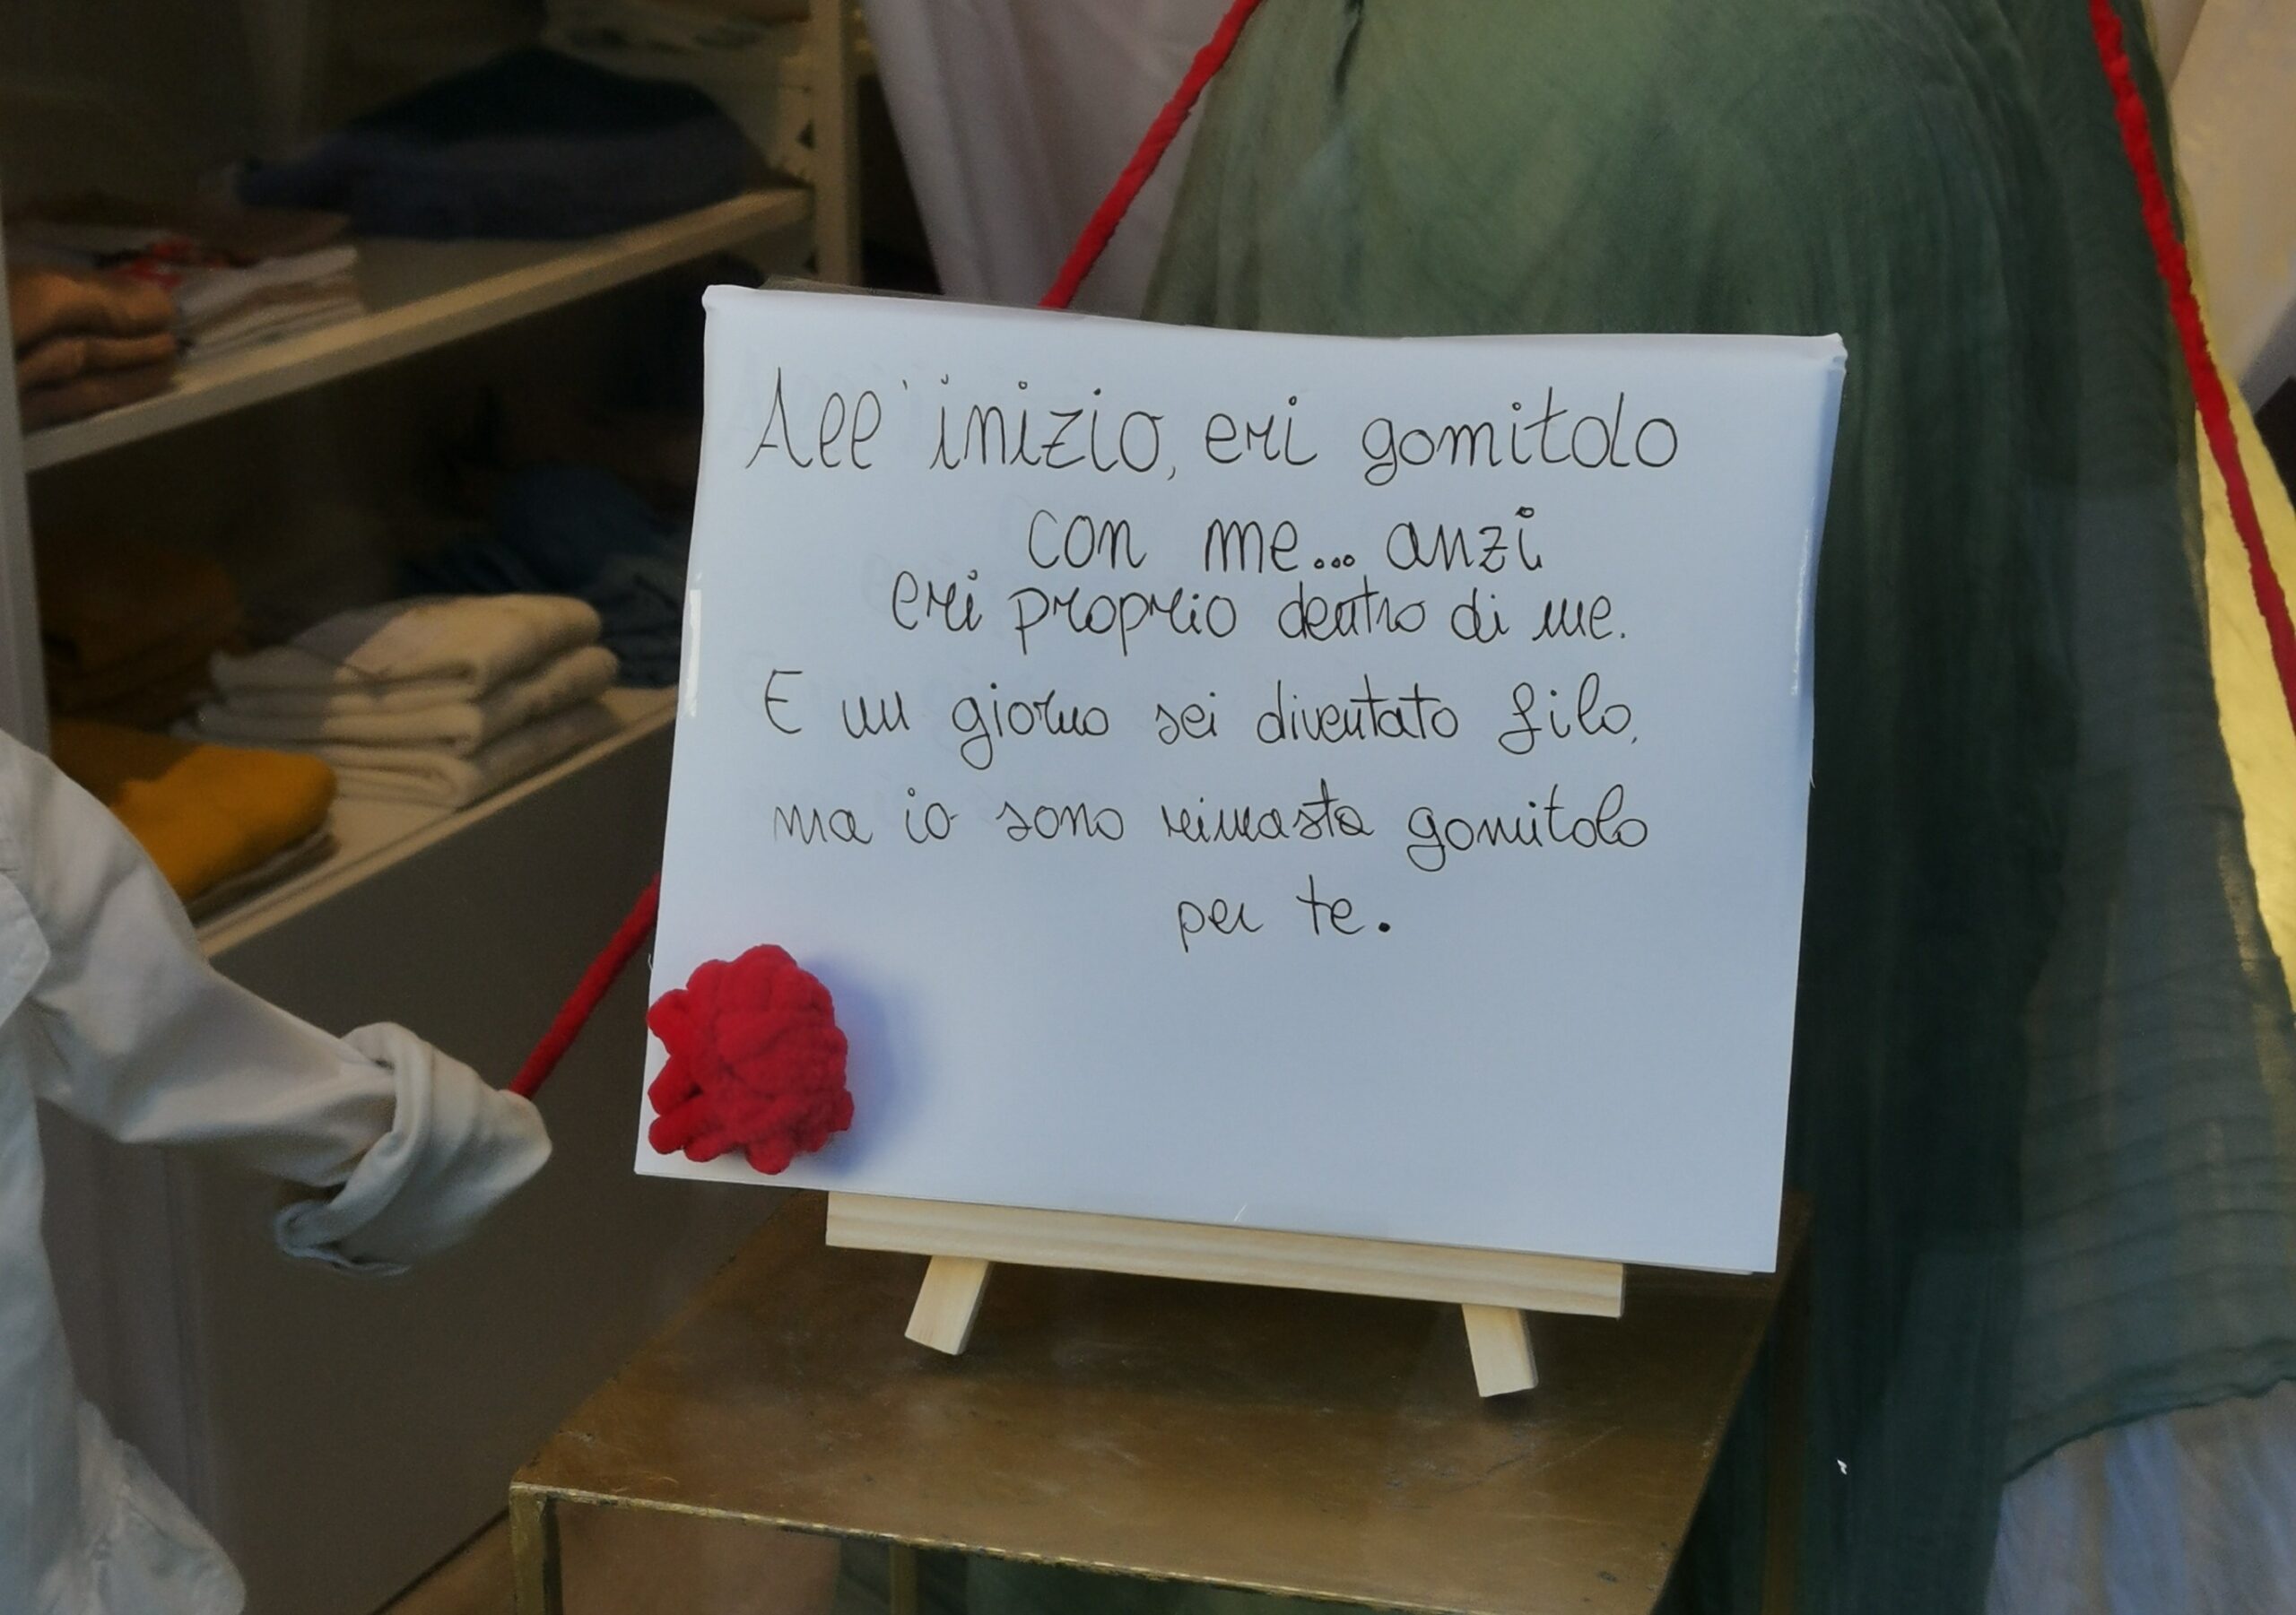 All'inizio, eri gomitolo
con me... anzi
eri proprio dentro di me.
E un giorno sei diventato filo,
ma io sono rimasta gomitolo
per te.